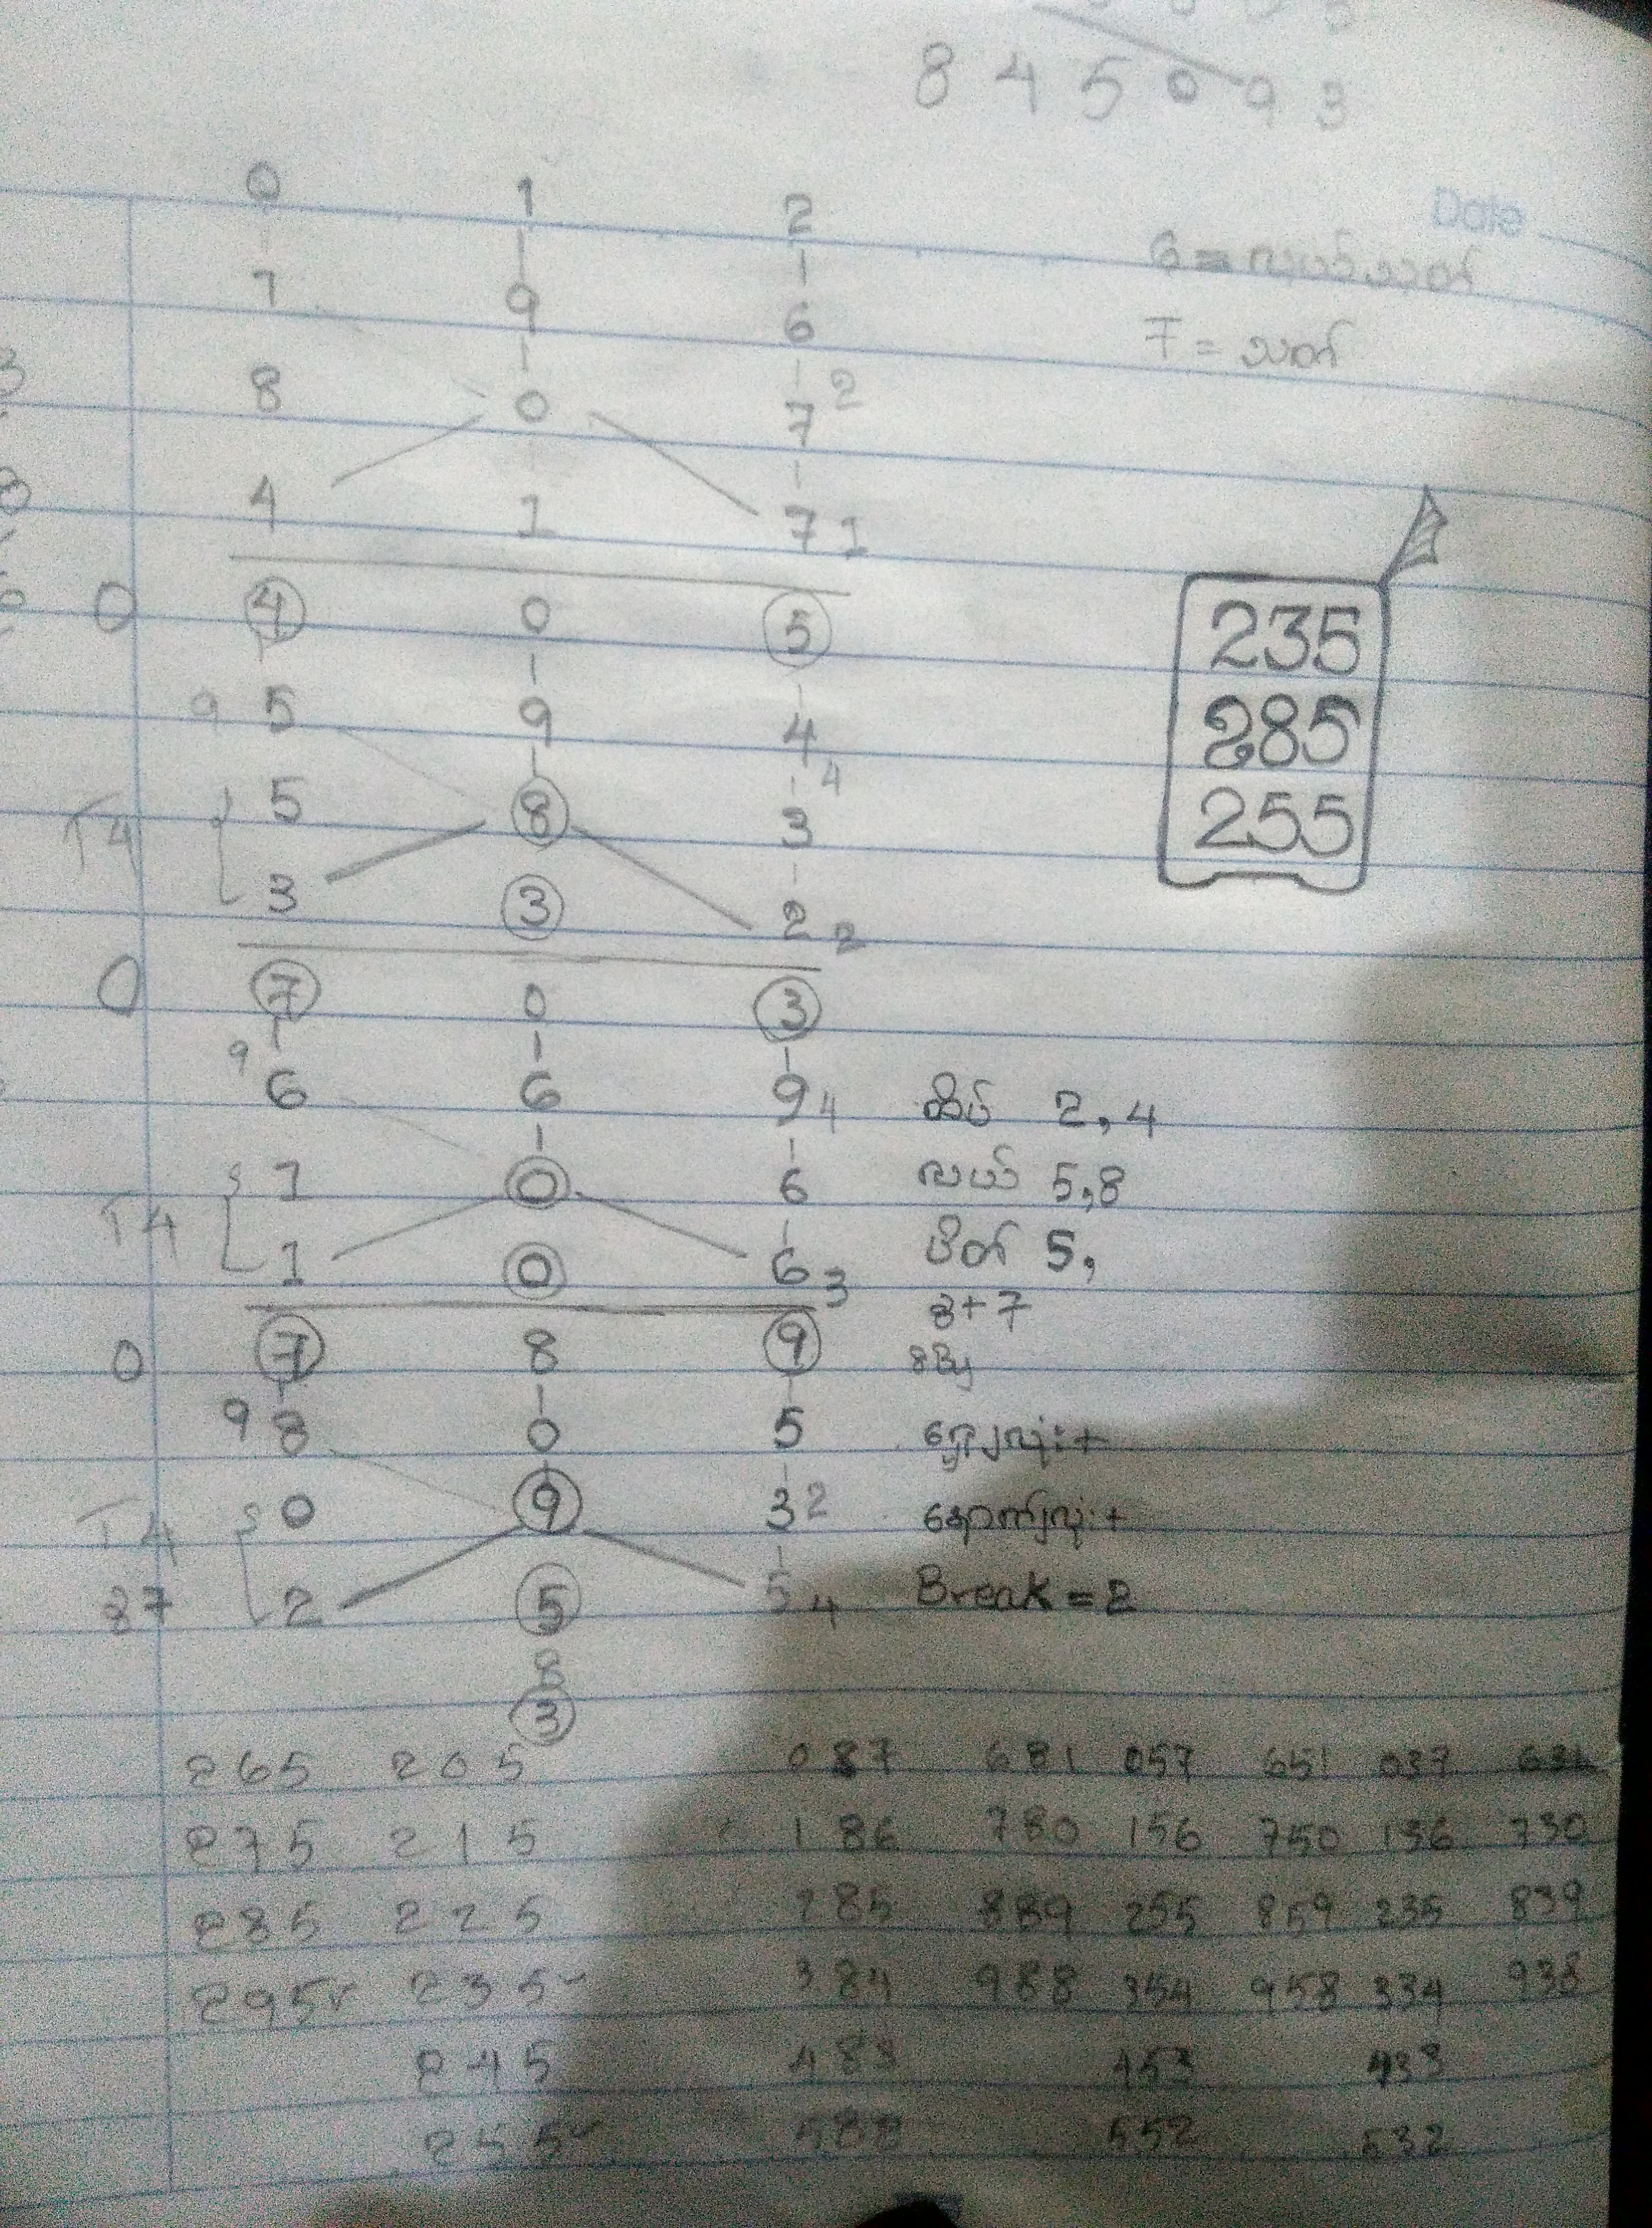 8 4 5 0 9 3
0 1 2
Date
6 = လုပ်သတ်
7 9 6
7 = သတ်
8 0 7 2
4 1 7 1
0 4 0 5
235
9 5 9 4
285
T4 5 8 3 4
255
3 3 2 2
0 7 0 3
9 6 6 9 4 ထိပ် 2, 4
1 0 6 လယ် 5,8
T4 1 0 6 3 ပိတ် 5,
8+7
0 7 8 9
9 8 0 5 ရှေ့လုံး+
T4 0 9 3 2 နောက်လုံး+
37 2 5 5 4 Break = 2
8
3
265 205 087 681 057 651 037 631
275 215 186 780 156 750 136 730
285 225 285 889 255 859 235 839
295 235 384 988 354 958 334 938
245 483 453 433
255 582 552 532